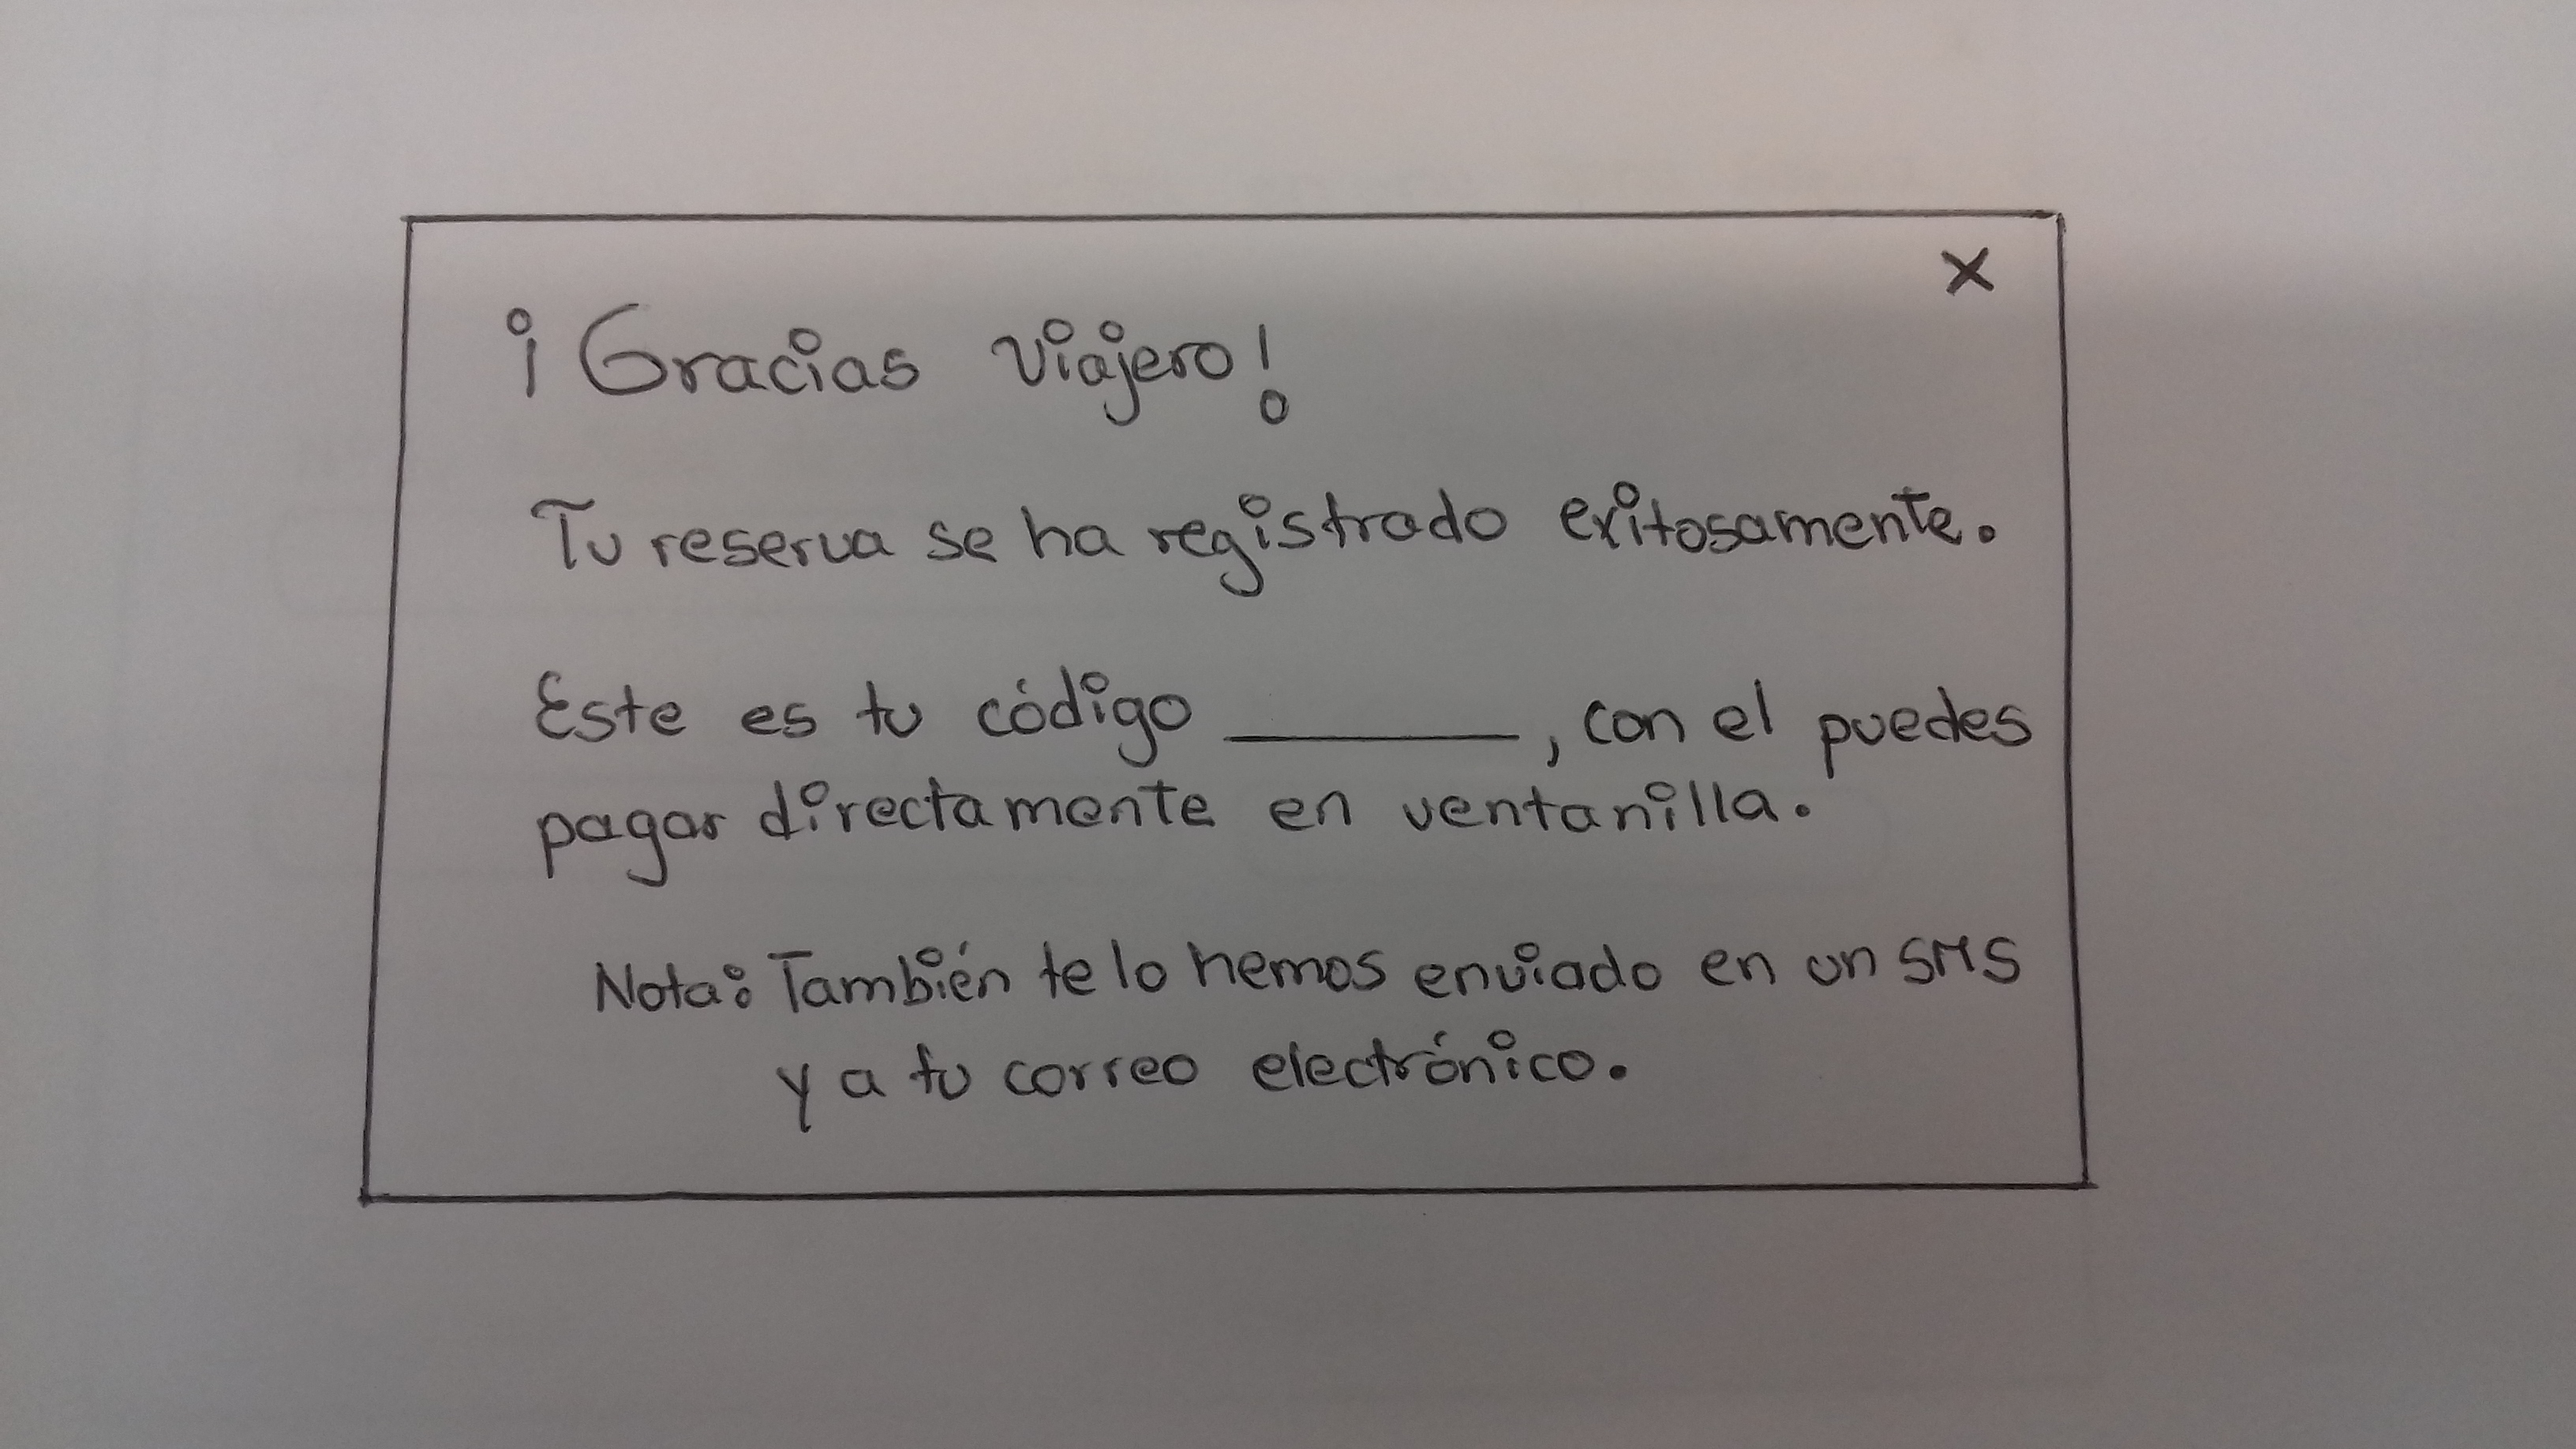 X
¡Gracias viajero!
Tu reserva se ha registrado exitosamente.
Este es tu código ________, con el puedes
pagar directamente en ventanilla.
Nota: También te lo hemos enviado en un SMS
y a tu correo electrónico.